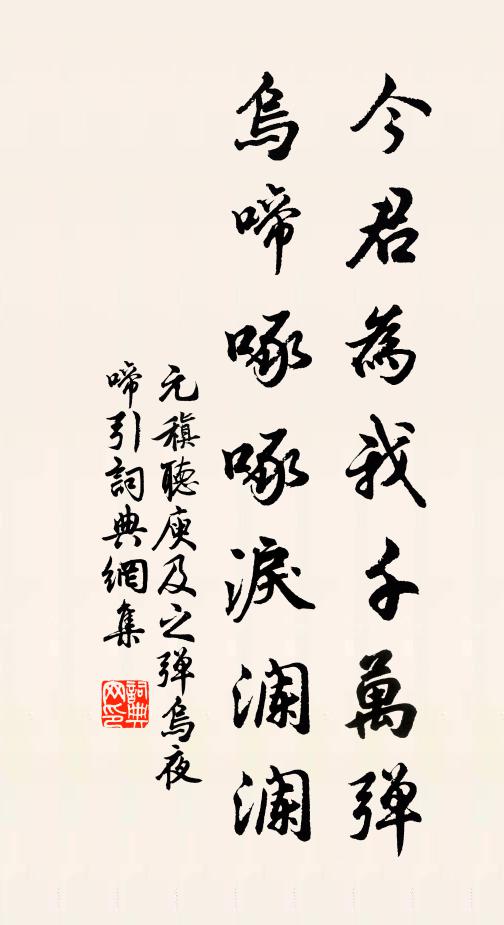 今君為我千萬弹
烏啼啄啄淚澜澜
元稹聴庾及之弹烏夜
啼引詞典網集
詞典网印